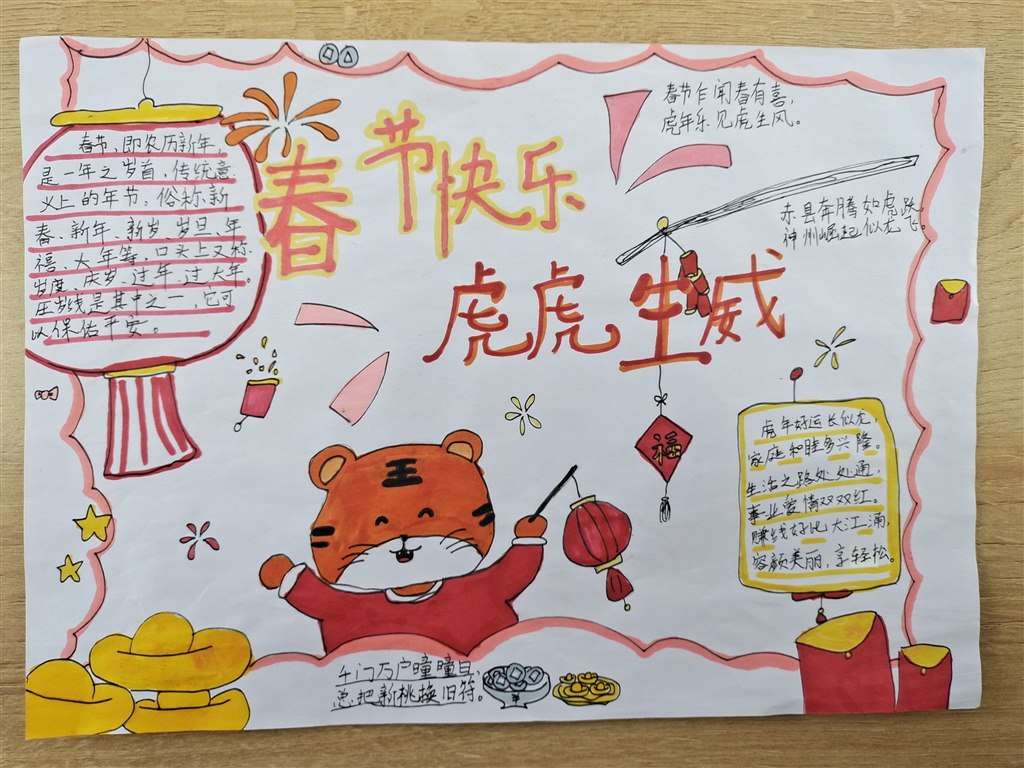 春节快乐
虎虎生威
春节、即农历新年,
是一年之岁首、传统意
义上的年节。俗称新
春、新年、新岁、岁旦、年
禧、大年等,口头上又称
岁度、庆岁、过年、过大年。
压岁钱是其中之一,它可
以保佑平安。
春节乍闻春有喜,
虎年乐见虎生风。
赤县奔腾如虎跃,
神州崛起似龙飞。
福
王
虎年好运长似龙,
家庭和睦多兴隆。
生活之路处处通,
事业爱情双双红。
赚钱好比大江涌,
容颜美丽,享轻松。
千门万户曈曈日,
总把新桃换旧符。